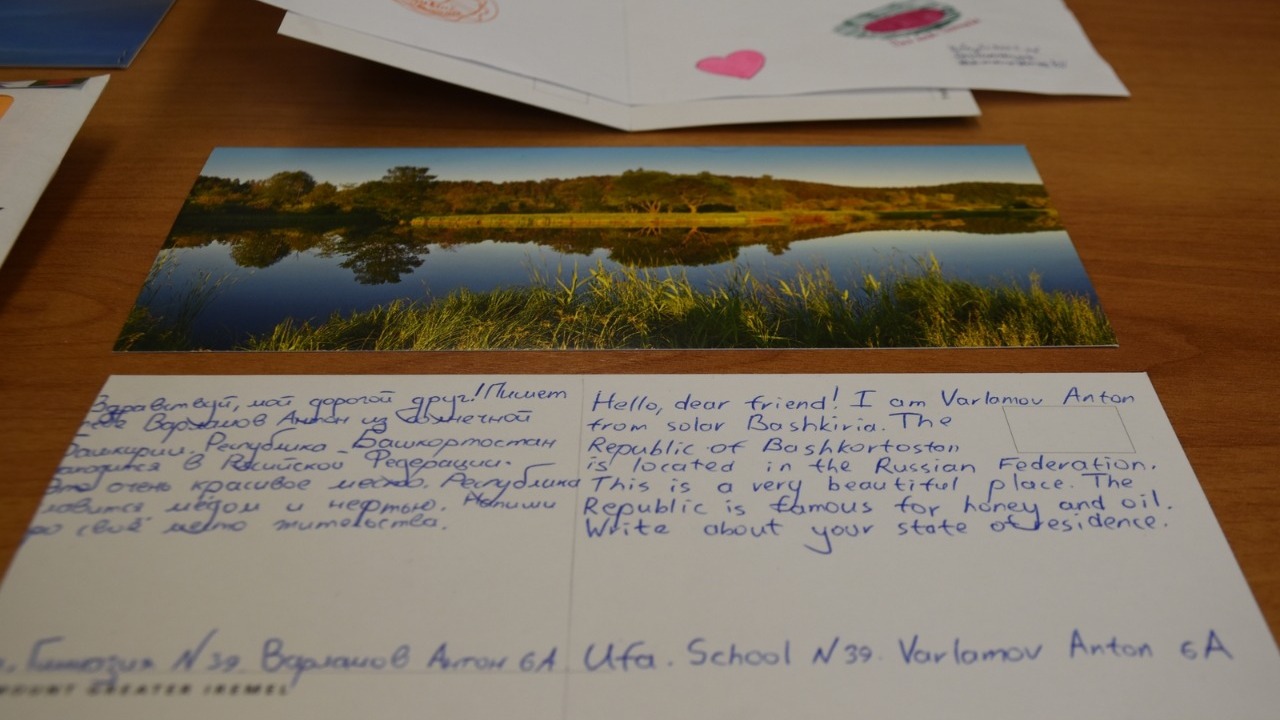 Здравствуй, мой дорогой друг! Пишет
тебе Варламов Антон из солнечной
Башкирии. Республика Башкортостан
находится в Российской Федерации.
Это очень красивое место. Республика
славится мёдом и нефтью. Напиши
про своё место жительства.
Гимназия N39 Варламов Антон 6А
MOUNT GREATER IREMEL
Hello, dear friend! I am Varlamov Anton
from solar Bashkiria. The
Republic of Bashkortoston
is located in the Russian Federation.
This is a very beautiful place. The
Republic is famous for honey and oil.
Write about your state of residence.
Ufa. School N39. Varlamov Anton 6A